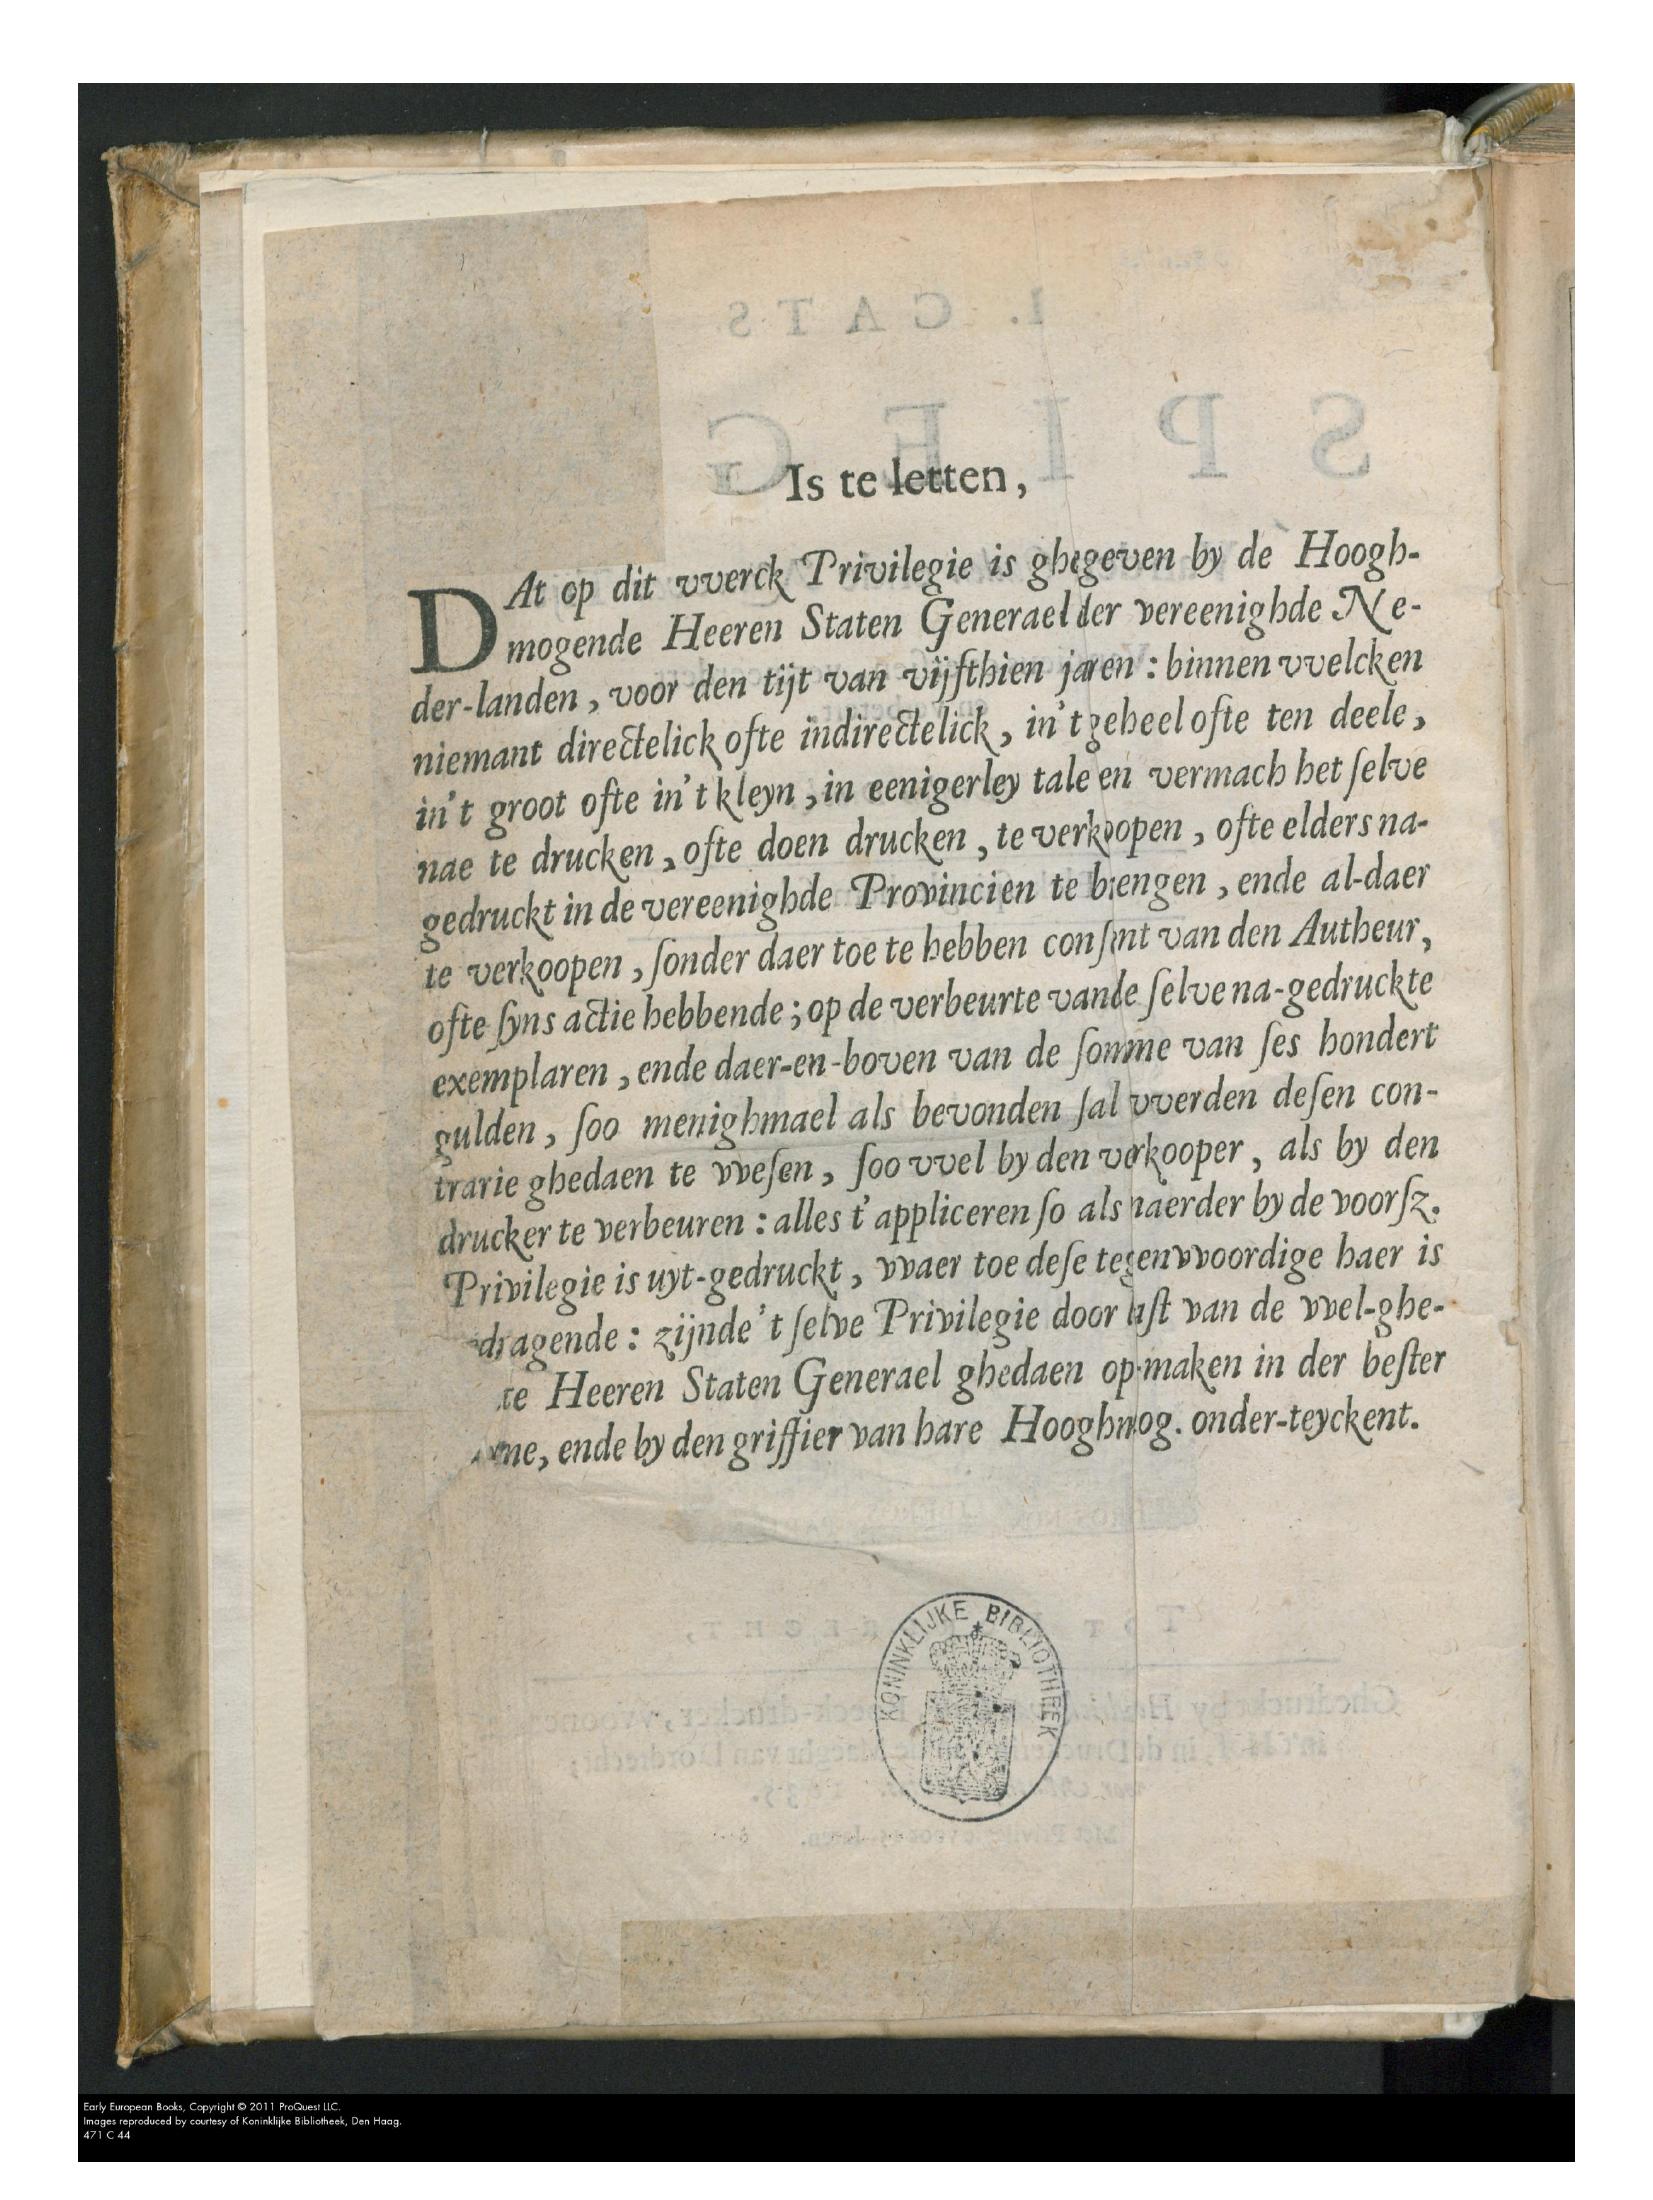 Is te letten,
DAt op dit vverck Privilegie is ghegeven by de Hoogh-
mogende Heeren Staten Generael der vereenighde Ne-
der-landen, voor den tijt van vijfthien jaren: binnen vvelcken
niemant directelick ofte indirectelick, in't geheel ofte ten deele,
in't groot ofte in't kleyn, in eenigerley tale en vermach het ſelve
nae te drucken, ofte doen drucken, te verkoopen, ofte elders na-
gedruckt in de vereenighde Provincien te brengen, ende al-daer
te verkoopen, ſonder daer toe te hebben conſent van den Autheur,
ofte ſyns actie hebbende; op de verbeurte vande ſelve na-gedruckte
exemplaren, ende daer-en-boven van de ſomme van ſes hondert
gulden, ſoo menighmael als bevonden ſal vverden deſen con-
trarie ghedaen te vveſen, ſoo vvel by den verkooper, als by den
drucker te verbeuren: alles t'appliceren ſo als naerder by de voorſz.
Privilegie is uyt-gedruckt, vvaer toe deſe tegenvvoordige haer is
dragende: zijnde 't ſelve Privilegie door laſt van de vvel-ghe-
te Heeren Staten Generael ghedaen op-maken in der beſter
me, ende by den griffier van hare Hooghmog. onder-teyckent.
KONINKLIJKE BIBLIOTHEEK
Early European Books, Copyright © 2011 ProQuest LLC.
Images reproduced by courtesy of Koninklijke Bibliotheek, Den Haag.
471 C 44